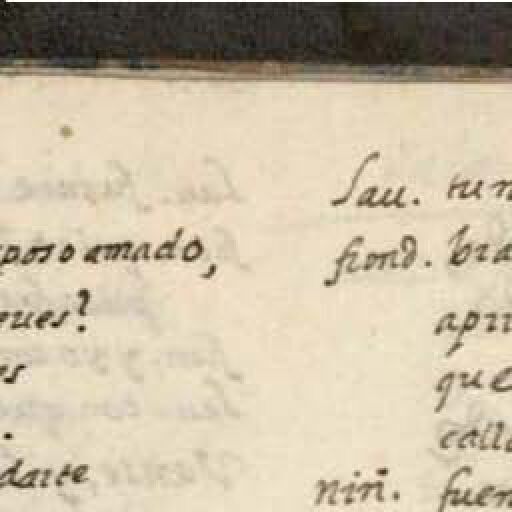 sposo amado,
eues?
es
.
darte
Lau. tu n
fiond. bra
apri
que
calla
niñ. fuen